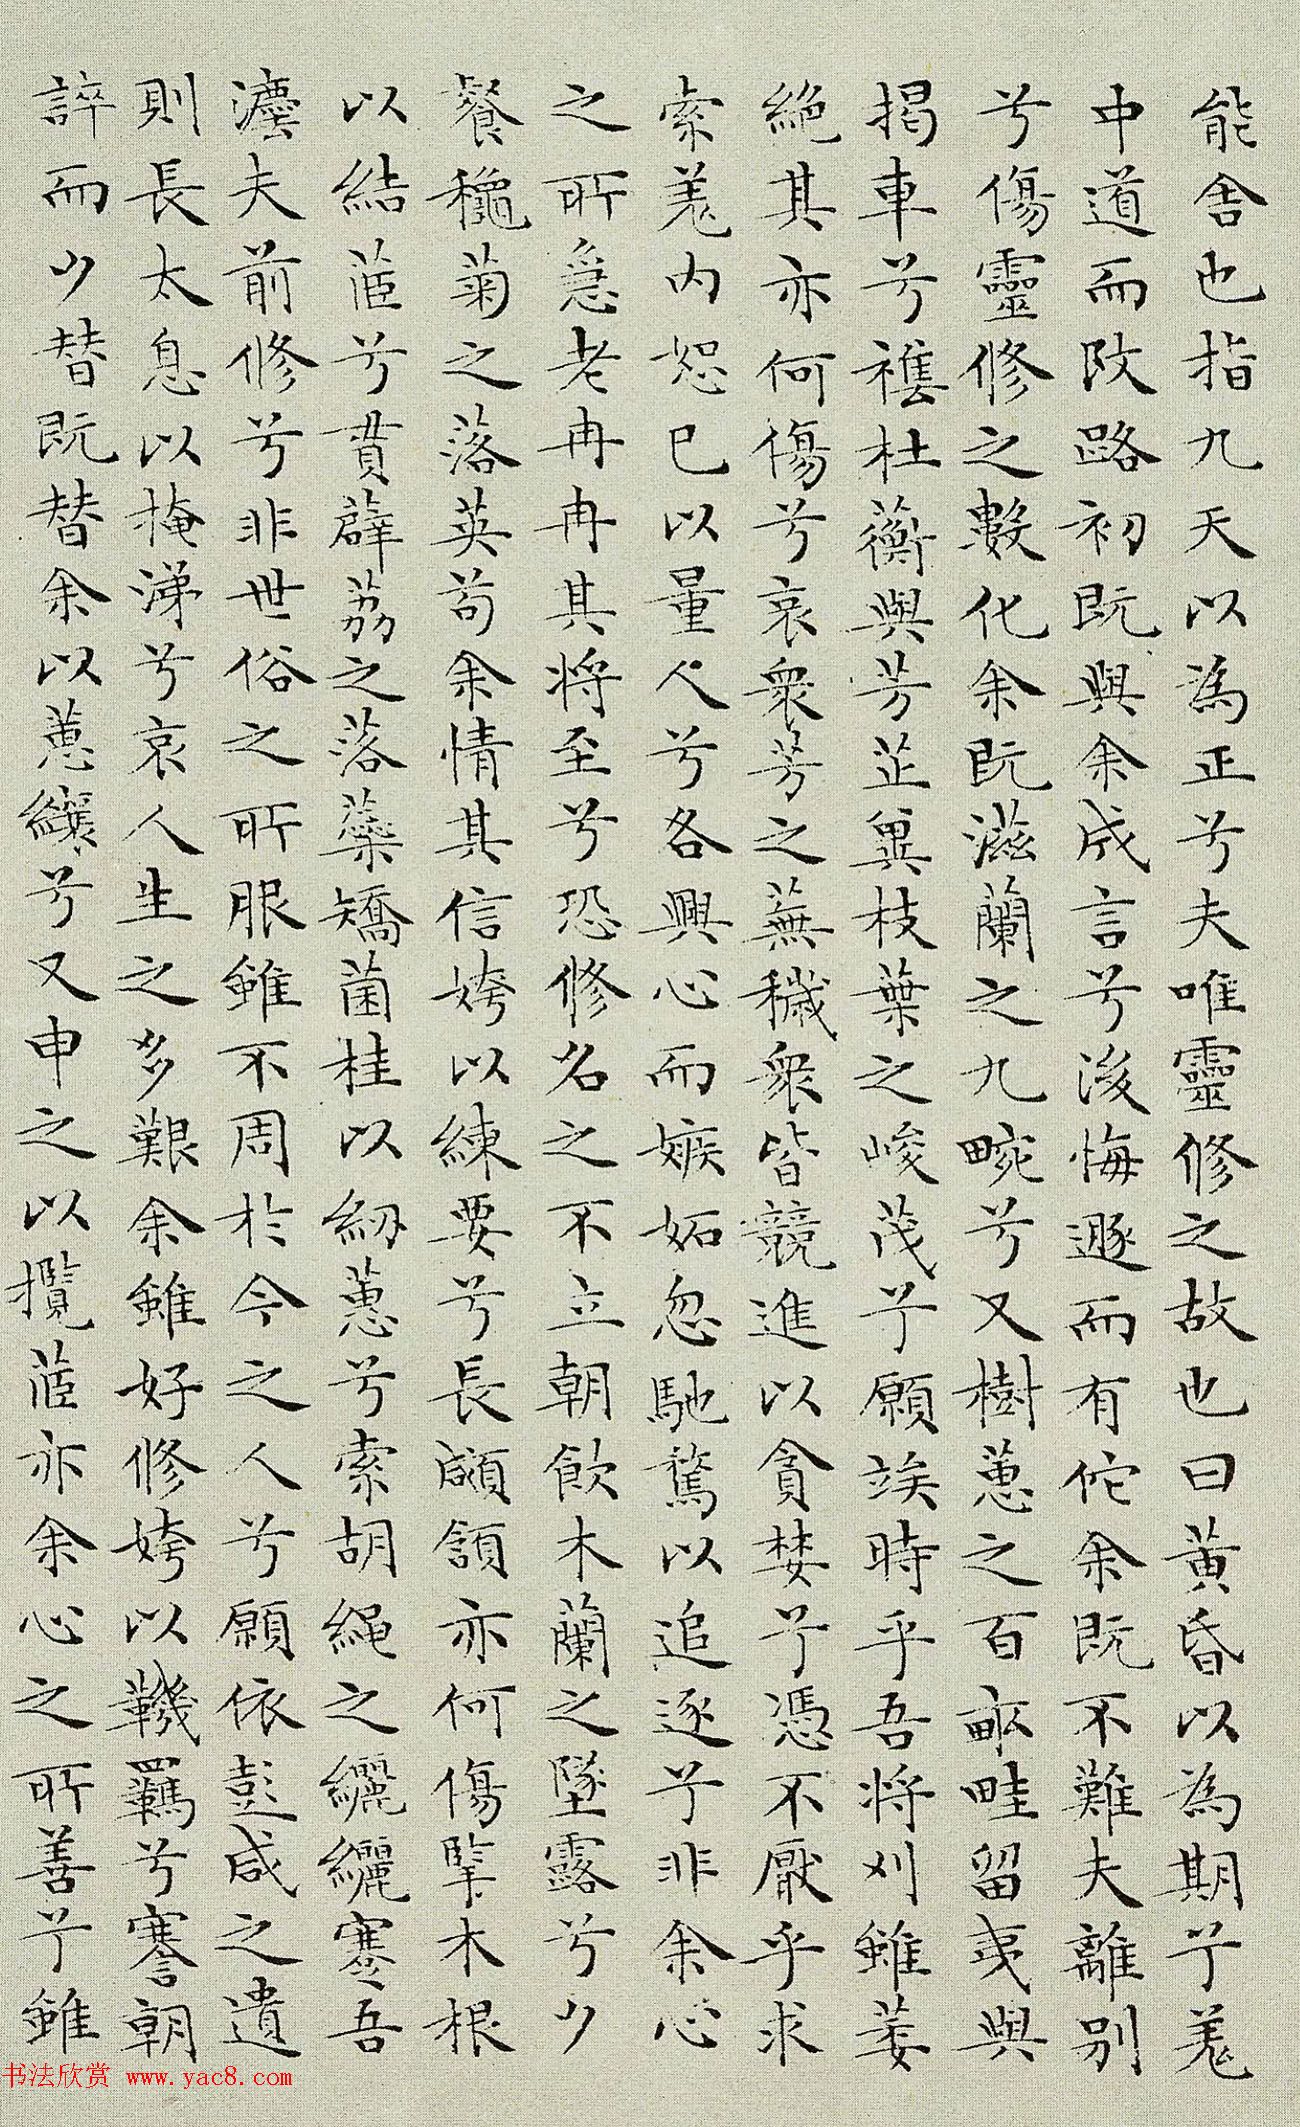 能舍也指九天以為正兮夫唯靈修之故也曰黄昏以為期兮羌
中道而改路初既與余成言兮後悔遯而有佗余既不難夫離別
兮傷靈修之數化余既滋蘭之九畹兮又樹蕙之百畝畦留夷與
揭車兮襍杜蘅與芳芷兾枝葉之峻茂兮願竢時乎吾將刈雖萎
絶其亦何傷兮哀衆芳之蕪穢衆皆競進以貪婪兮憑不厭乎求
索羌内恕己以量人兮各興心而嫉妬忽馳騖以追逐兮非余心
之所急老冉冉其將至兮恐修名之不立朝飲木蘭之墜露兮夕
餐穐菊之落英苟余情其信姱以練要兮長顑頷亦何傷擥木根
以結茝兮貫薜荔之落蘂矯菌桂以紉蕙兮索胡繩之纚纚謇吾
灋夫前修兮非世俗之所服雖不周於今之人兮願依彭咸之遺
則長太息以掩涕兮哀人生之多艱余雖好修姱以鞿羈兮謇朝
誶而夕替既替余以蕙纕兮又申之以攬茝亦余心之所善兮雖
书法欣赏 www.yac8.com